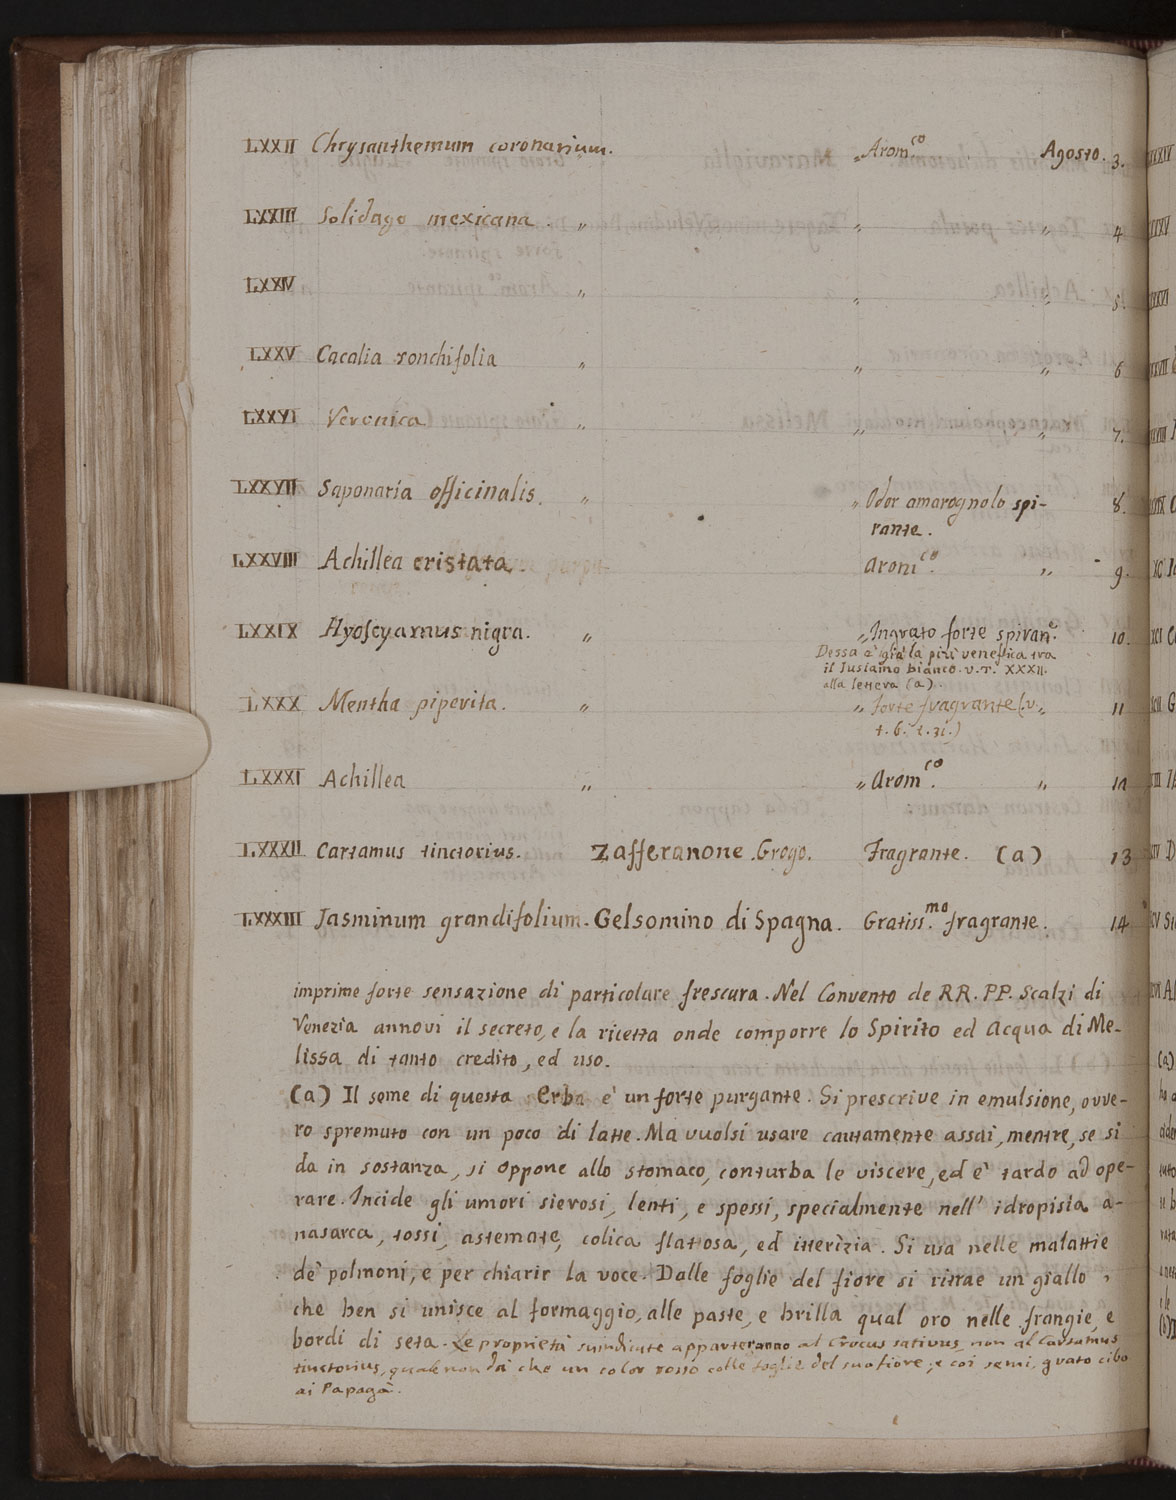 LXXII Chrysanthemum coronarium. „ Arom.co Agosto. 3.
LXXIII Solidago mexicana. „ „ „ 4
LXXIV „ „ „ 5.
LXXV Cacalia ronchifolia „ „ „ 6
LXXVI Veronica „ „ „ 7.
LXXVII Saponaria officinalis. „ „ Odor amarognolo spi- 8.
rante.
LXXVIII Achillea cristata. Arom.co „ 9.
LXXIX Hyoscyamus nigra. „ „ Ingrato forte spiran.e 10.
Dessa è già la più venefica tra
il Jusiamo bianco. v. T. XXXII.
alla lettera (a).
LXXX Mentha piperita. „ „ forte fragrante (v. „ 11
t. 6. t. 31.)
LXXXI Achillea „ „ Arom.co „ 12
LXXXII Cartamus tinctorius. Zafferanone. Grogo. Fragrante. (a) 13
LXXXIII Jasminum grandifolium. Gelsomino di Spagna. Gratiss.mo fragrante. 14
imprime forte sensazione di particolare frescura. Nel Convento de RR. PP. Scalzi di
Venezia annovi il secreto, e la ricetta onde comporre lo Spirito ed Acqua di Me-
lissa di tanto credito, ed uso.
(a) Il seme di questa Erba è un forte purgante. Si prescrive in emulsione, ovve-
ro spremuto con un poco di latte. Ma vuolsi usare cautamente assai, mentre, se si
da in sostanza, si oppone allo stomaco, conturba le viscere, ed è tardo ad ope-
rare. Incide gli umori sierosi, lenti, e spessi, specialmente nell' idropisia a-
nasarca, tossi, astemate, colica flattosa, ed itterizia. Si usa nelle malattie
de' polmoni, e per chiarir la voce. Dalle foglie del fiore si ritrae un giallo,
che ben si unisce al formaggio, alle paste, e brilla qual oro nelle frangie, e
bordi di seta. Le proprietà suindicate apparteranno al Crocus sativus, non al Carsamus
tinctorius, quale non dà che un color rosso colle foglie del suo fiore; e coi semi, grato cibo
ai Papagà.